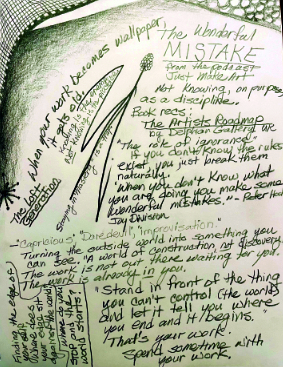 When your work becomes wallpaper,
it gets old.
The Lost
Generation
The Wonderful
MISTAKE
from the podcast
Just Make Art
Not Knowing, on purpose,
as a discipline.
Book recs:
The Artists Roadmap
by Delphian Gallery
"The role of ignorance"
If you don't know the rules
exist, you just break them
naturally.
"When you don't know what
you are doing you make some
wonderful mistakes." - Peter Hook
Joy Division
"Capricious," "Daredevil," "improvisation"
Turning the outside world into something you
can see. "A world of construction, not discovery
The work is not out there waiting for you.
The work is already in you.
Finding the edge of
yourself.
"Stand in front of the thing
you can't control (the world)
and let it tell you where
you end and it begins."
That's your work!
Spend sometime with
your work.